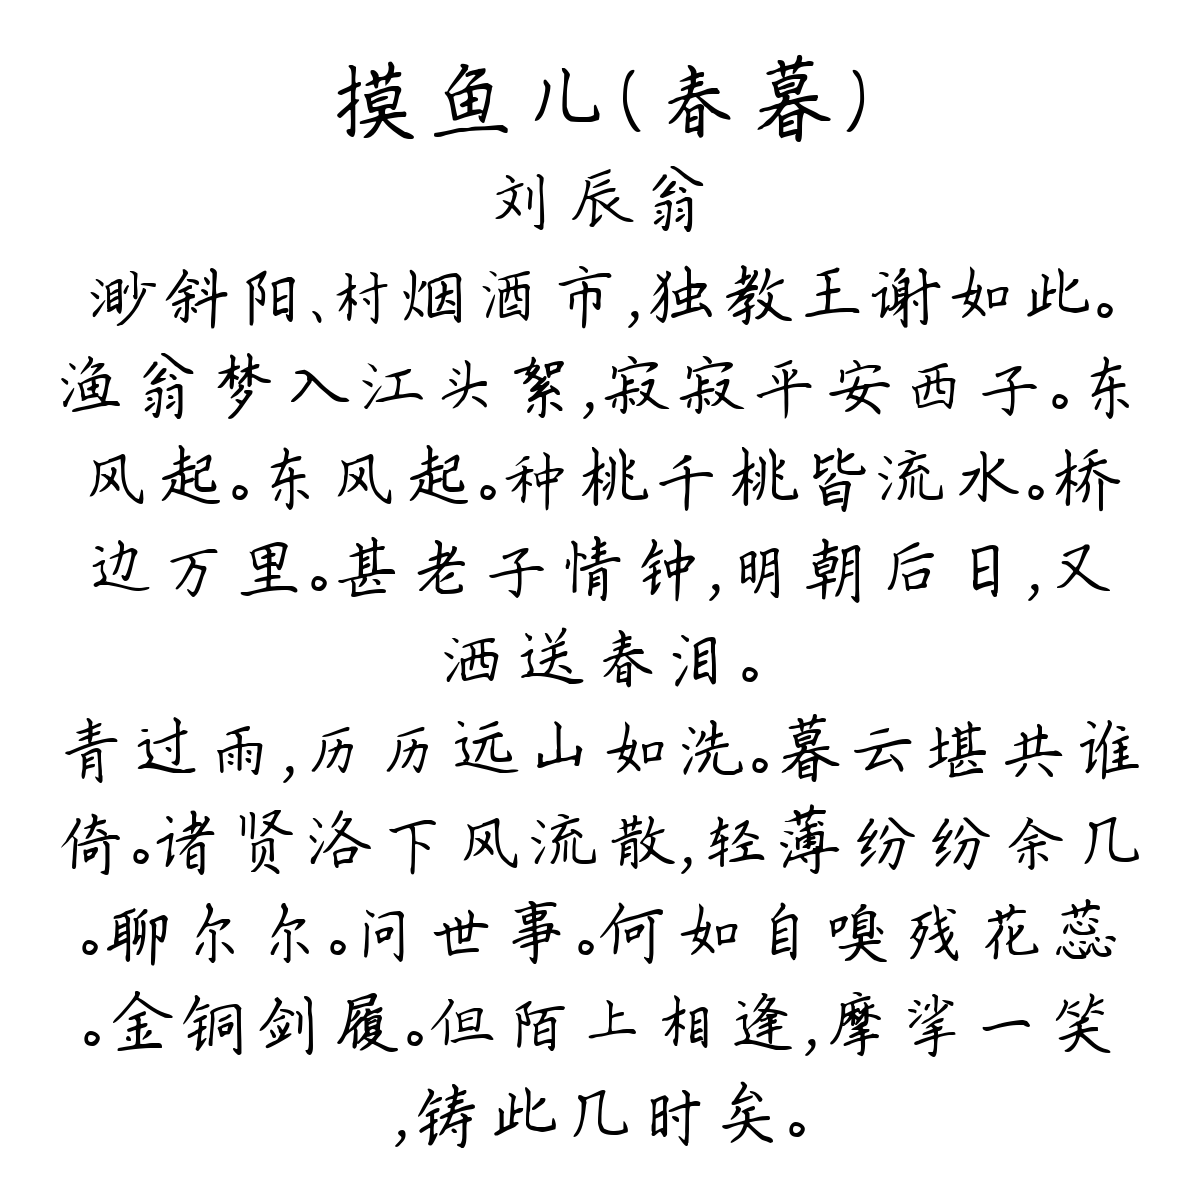 摸鱼儿(春暮)
刘辰翁
渺斜阳、村烟酒市,独教王谢如此。
渔翁梦入江头絮,寂寂平安西子。东
风起。东风起。种桃千桃皆流水。桥
边万里。甚老子情钟,明朝后日,又
洒送春泪。
青过雨,历历远山如洗。暮云堪共谁
倚。诸贤洛下风流散,轻薄纷纷余几
。聊尔尔。问世事。何如自嗅残花蕊
。金铜剑履。但陌上相逢,摩挲一笑
,铸此几时矣。